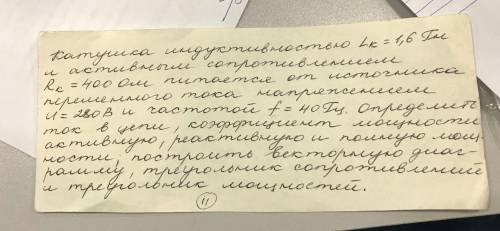 Катушка индуктивностью Lк = 1,6 Гн
и активным сопротивлением
Rк = 400 Ом питается от источника
переменного тока напряжением
U = 280 В и частотой f = 40 Гц. Определить
ток в цепи, коэффициент мощности
активную, реактивную и полную мощ-
ности, построить векторную диаг-
рамму, треугольник сопротивлений
и треугольник мощностей.
11